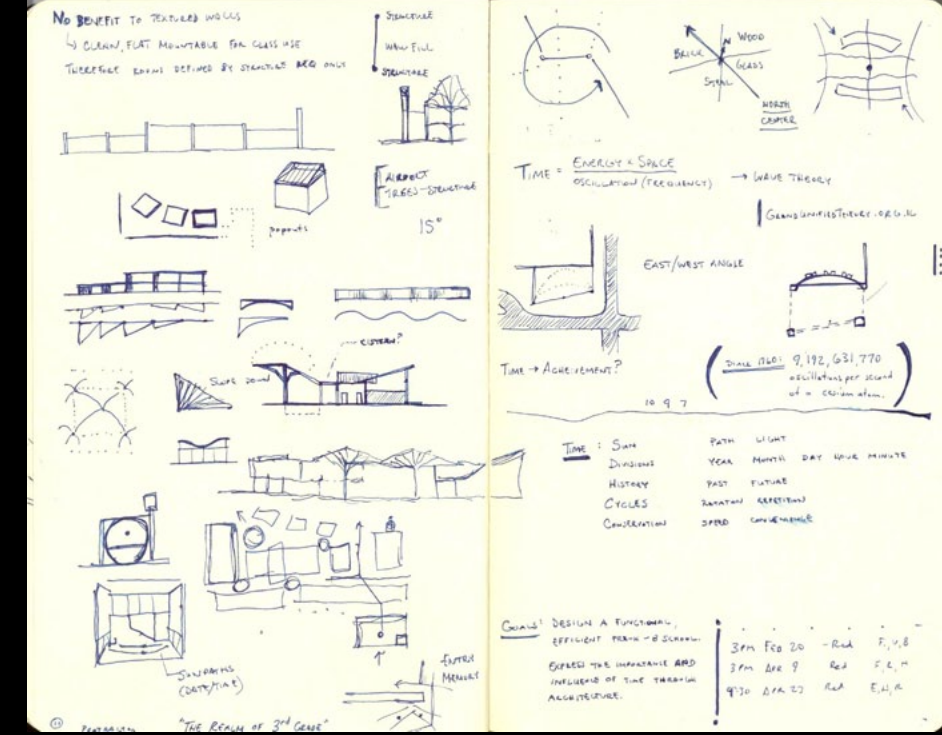 NO BENEFIT TO TEXTURED WALLS
↳ CLEAN, FLAT MOUNTABLE FOR CLASS USE
THEREFORE ROOMS DEFINED BY STRUCTURE REQ ONLY
STRUCTURE
WALL FILL
STRUCTURE
AIRPORT
TREES - STRUCTURE
15°
popouts
CISTERN?
SLOPE DOWN
SUNPATHS
(DATE/TIME)
ENTRY
MEMORY
"THE REALM OF 3rd GRADE"
N
WOOD
BRICK
GLASS
STEEL
NORTH
CENTER
TIME = ENERGY × SPACE
OSCILLATION (FREQUENCY) → WAVE THEORY
EAST/WEST ANGLE
TIME → ACHEIVEMENT?
(SINCE 1960: 9,192,631,770
oscillations per second
of a cesium atom.)
10 9 7
TIME : SUN PATH LIGHT
DIVISIONS YEAR MONTH DAY HOUR MINUTE
HISTORY PAST FUTURE
CYCLES ROTATION REPETITION
CONSERVATION SPEED CONVENIENCE
GOALS: DESIGN A FUNCTIONAL,
EFFICIENT PREK-8 SCHOOL.
EXPRESS THE IMPORTANCE AND
INFLUENCE OF TIME THROUGH
ARCHITECTURE.
3PM FEB 20 - Red
3PM APR 9 Red
9:30 APR 23 Red